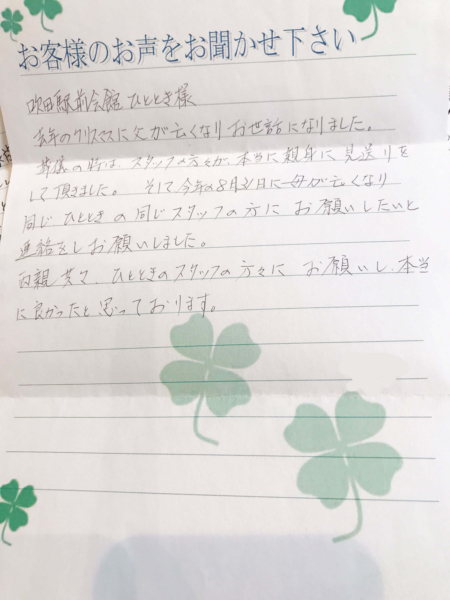 お客様のお声をお聞かせ下さい
吹田駅前会館 ひととき様
去年のクリスマスに父が亡くなりお世話になりました。
葬儀の時は、スタッフの方々が、本当に親身に見送りを
して頂きました。そして今年の8月31日に母が亡くなり
同じ ひとときの同じスタッフの方に お願いしたいと
連絡をしお願いしました。
両親共々、ひとときのスタッフの方々に お願いし、本当
に良かったと思っております。